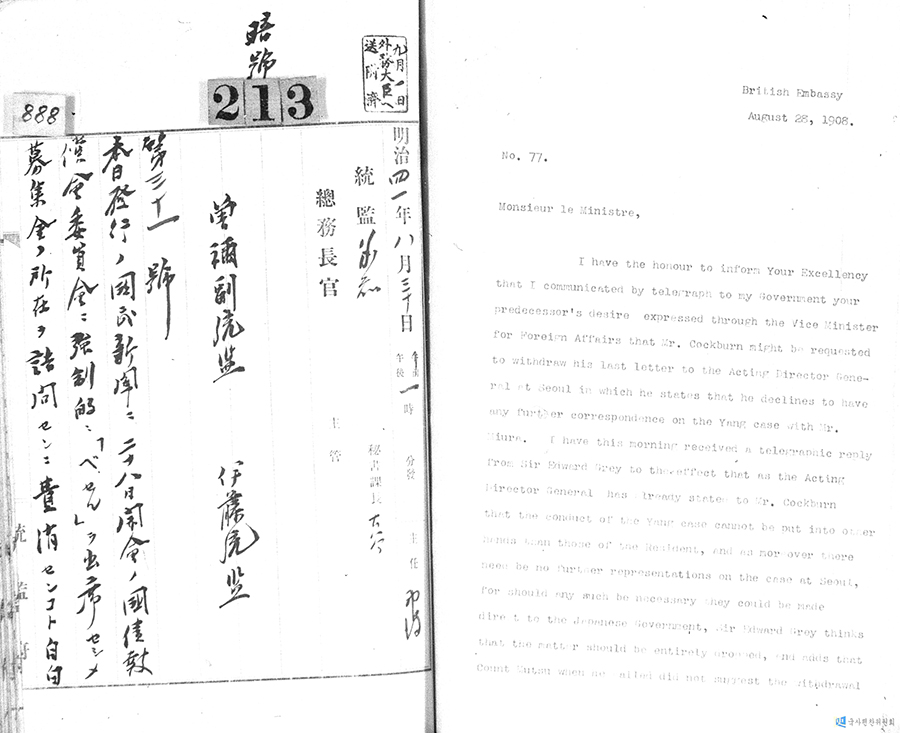 暗號
213
888
九月一日
外務大臣へ
送付濟
明治四一年八月三十日
午後一時
分發
主任
統監
秘書課長
總務長官
主管
曽禰副統監
伊藤統監
第三十一號
本日發行ノ國民新聞ニ二十八日開會ノ國債報
償會委員會ニ強制的ニ「べせる」ヲ出席セシメ
募集金ノ所在ヲ詰問センニ費消センコト自白
統監府
British Embassy
August 28, 1908.
No. 77.
Monsieur le Ministre,
I have the honour to inform Your Excellency
that I communicated by telegraph to my Government your
predecessor's desire expressed through the Vice Minister
for Foreign Affairs that Mr. Cockburn might be requested
to withdraw his last letter to the Acting Director Gene-
ral at Seoul in which he states that he declines to have
any further correspondence on the Yang case with Mr.
Miura. I have this morning received a telegraphic reply
from Sir Edward Grey to the effect that as the Acting
Director General has already stated to Mr. Cockburn
that the conduct of the Yang case cannot be put into other
hands than those of the Resident, and as moreover there
need be no further representations on the case at Seoul,
for should any such be necessary they could be made
direct to the Japanese Government, Sir Edward Grey thinks
that the matter should be entirely dropped, and adds that
Count Mutsu when he called did not suggest the withdrawal
국사편찬위원회